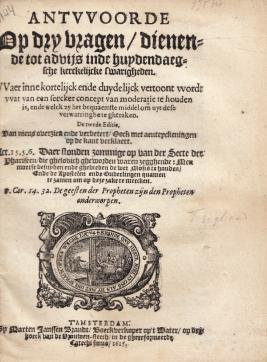 ANTVVOORDE
Op dry vragen / dienen-
de tot advijs inde huydendaeg-
sche kerckelijcke swarigheden.
VVaer inne kortelijck ende duydelijck vertoont wordt
wat van een seecker concept van moderatie te houden
is, ende welck zy het bequaemste middel om uyt dese
verwarringhe te gheraken.
De tweede Editie,
Van nieus overzien ende verbetert / Oock met aenteyckeningen
op de kant verklaert.
Act. 15. 5. 6. Daer stonden zommige op van der Secte der
Phariseen die gheloovich gheworden waren zegghende: Men
moetse besnyden ende ghebieden de wet Mosis te houden /
Ende de Apostelen ende Ouderlingen quamen
te zamen om op deze zake te mercken.
1. Cor. 14. 32. De geesten der Propheten zijn den Propheten
onderworpen.
T'AMSTERDAM.
By Marten Janssen Brandt / Boeckverkoper op't Water / op den
hoeck van de Vrouwen-steech / in de ghereformeerde
Catechismus / 1615.